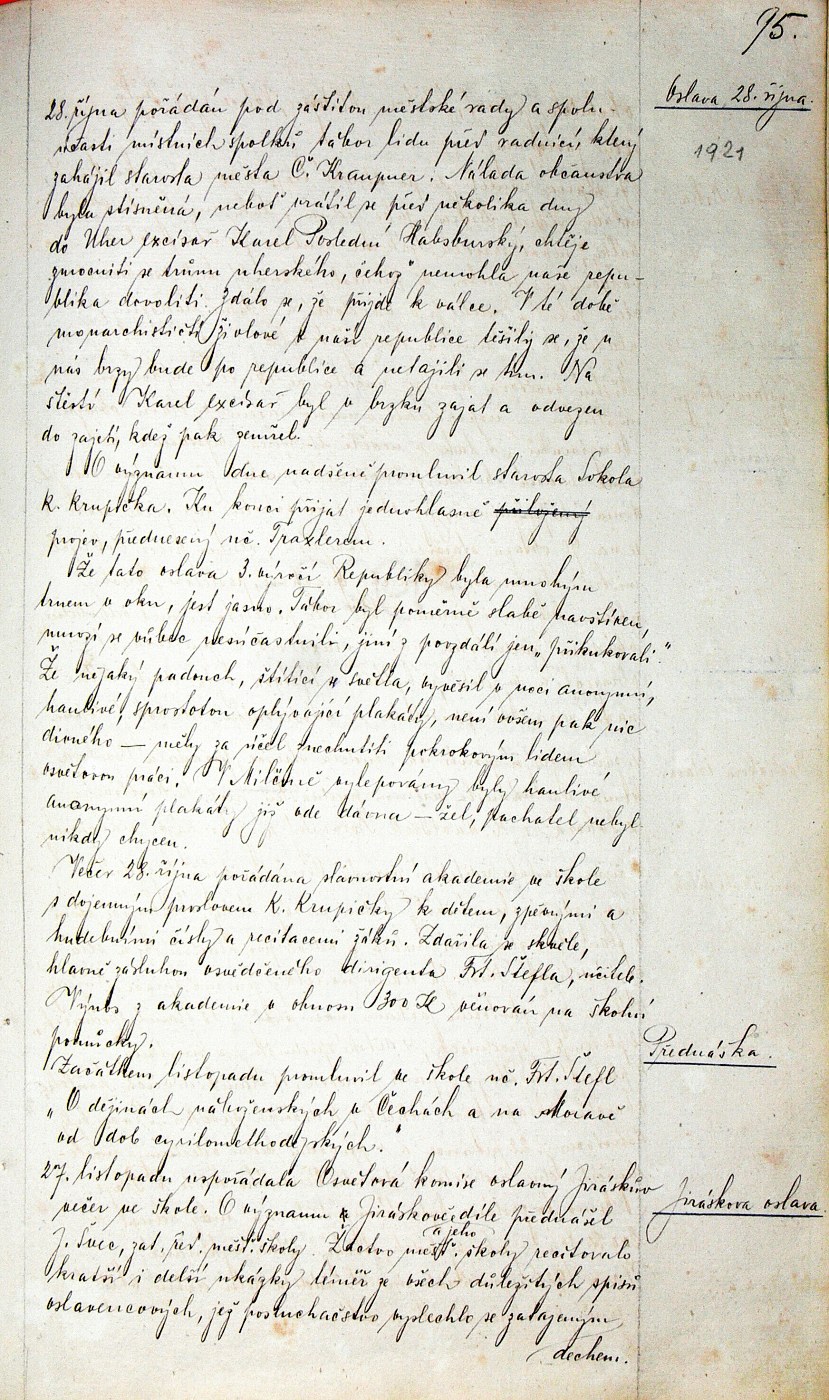 95.
Oslava 28. října.
1921
28. října pořádán pod záštitou městské rady a spolu-
účasti místních spolků tábor lidu před radnicí, který
zahájil starosta města Č. Kraupner. Nálada občanstva
byla stísněná, neboť vrátil se před několika dny
do Uher excísař Karel Poslední Habsburský, chtěje
zmocniti se trůnu uherského, čehož nemohla naše repu-
blika dovoliti. Zdálo se, že přijde k válce. V té době
monarchističtí živlové v naší republice těšily se, že u
nás brzy bude po republice a netajili se tím. Na
štěstí Karel excísař byl v brzku zajat a odvezen
do zajetí, kdež pak zemřel.
O významu dne nadšeně promluvil starosta Sokola
K. Krupička. Ku konci přijat jednohlasně přiložený
projev, přednesený uč. Traxlerem.
Že tato oslava 3. výročí Republiky byla mnohým
trnem v oku, jest jasno. Tábor byl poměrně slabě navštíven,
mnozí se vůbec nesúčastnili, jiní z povzdálí jen „přikukovali".
Že nějaký padouch, štítící se světla, vyvěsil v noci anonymní,
hanlivé, sprostotou oplývající plakáty, není ovšem pak nic
divného — měly za účel znechutiti pokrokovým lidem
osvětovou práci. V Milčíně vylepovány byly hanlivé
anonymní plakáty již ode dávna — žel, pachatel nebyl
nikdy chycen.
Večer 28. října pořádána slavnostní akademie ve škole
s dojemným proslovem K. Krupičky k dětem, zpěvnými a
hudebními čísly a recitacemi žáků. Zdařila se skvěle,
hlavně zásluhou osvědčeného dirigenta Frt. Štefla, učitele.
Výnos z akademie v obnosu 300 Kč věnován na školní
pomůcky.
Přednáška.
Začátkem listopadu promluvil ve škole uč. Frt. Štefl
„O dějinách náboženských v Čechách a na Moravě
od dob cyrilomethodějských."
27. listopadu uspořádala Osvětová komise oslavný Jiráskův
Jiráskova oslava.
večer ve škole. O významu Jiráskově a jeho díle přednášel
J. Švec, zat. řed. měšť. školy. Žactvo měšť. školy recitovalo
kratší i delší ukázky téměř ze všech důležitých spisů
oslavencových, jež posluchačstvo vyslechlo se zatajeným
dechem.